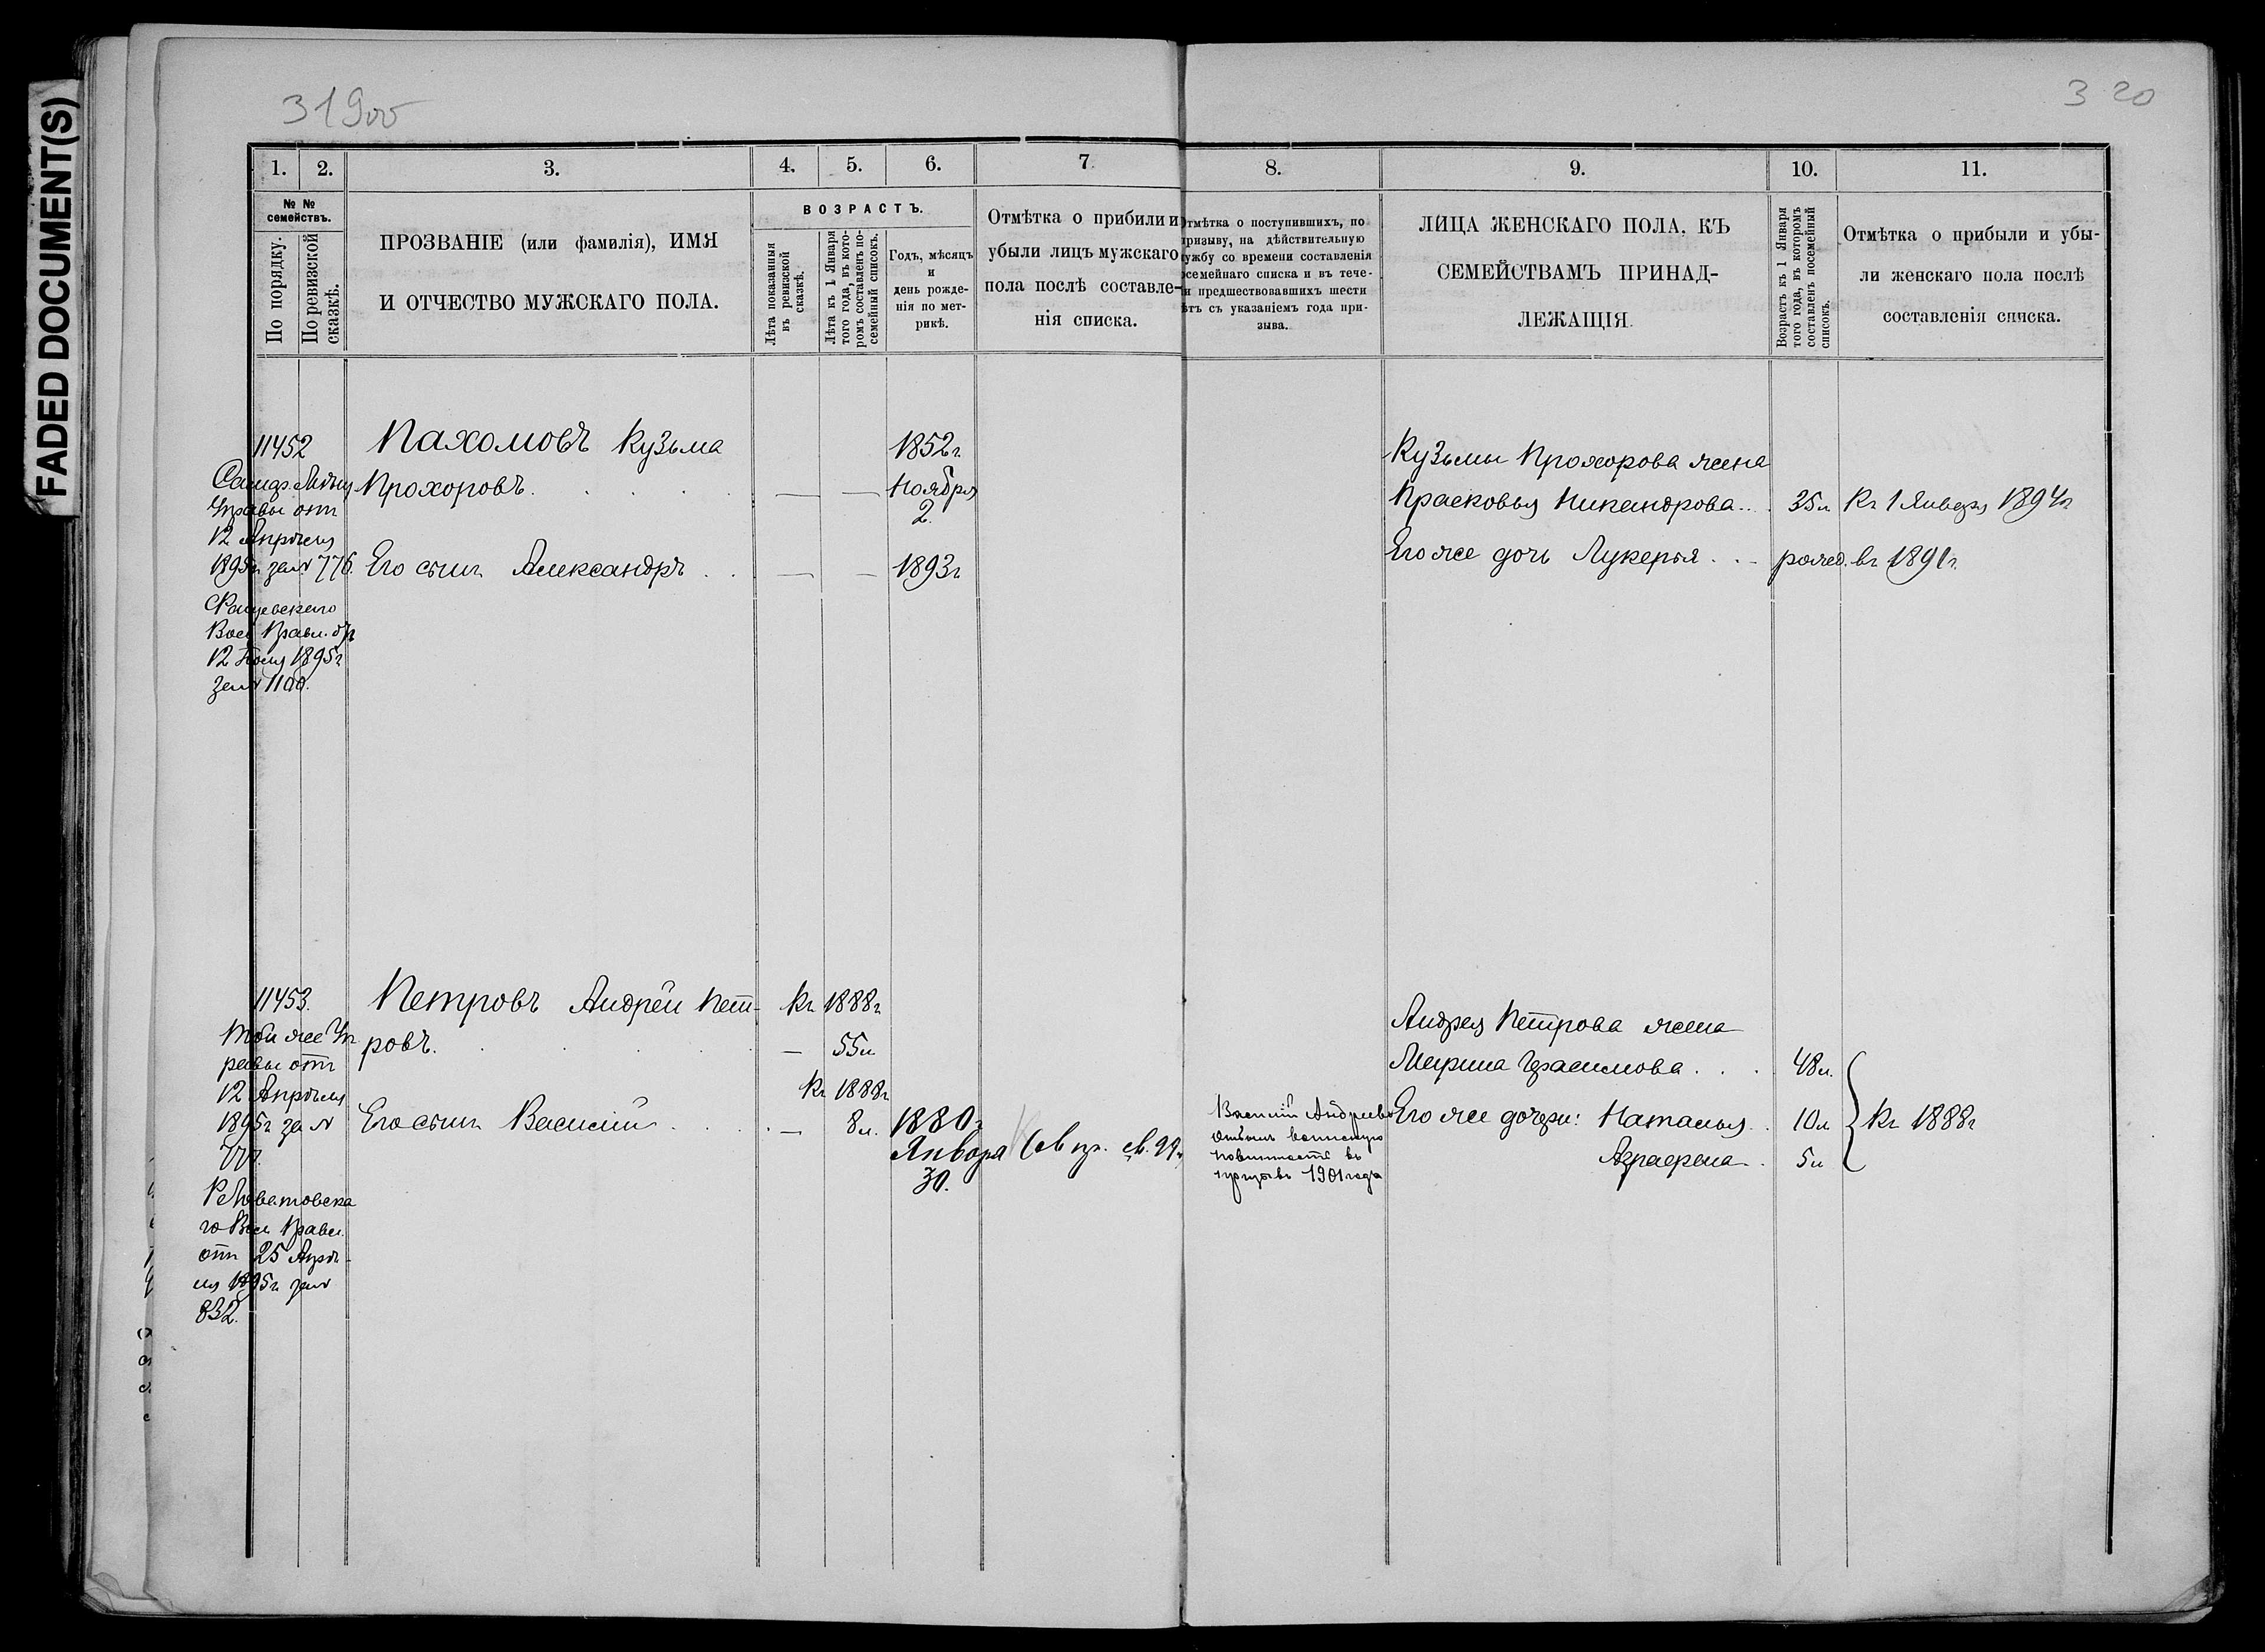 FADED DOCUMENT(S)
3 20
1.
2.
3.
4.
5.
6.
7
8.
9.
10.
11.
№ №
семействъ.
По порядку.
По ревизской
сказкѣ.
ПРОЗВАНІЕ (или фамилія), ИМЯ
И ОТЧЕСТВО МУЖСКАГО ПОЛА.
ВОЗРАСТЪ.
Лѣта показанныя
въ ревизской
сказкѣ.
Лѣта къ 1 Января
того года, въ кото-
ромъ составленъ по-
семейный списокъ.
Годъ, мѣсяцъ
и
день рожде-
нія по мет-
рикѣ.
Отмѣтка о прибыли и
убыли лицъ мужскаго
пола послѣ составле-
нія списка.
Отмѣтка о поступившихъ, по
призыву, на дѣйствительную
службу со времени составленія
семейнаго списка и въ тече-
предшествовавшихъ шести
съ указаніемъ года при-
зыва.
ЛИЦА ЖЕНСКАГО ПОЛА, КЪ
СЕМЕЙСТВАМЪ ПРИНАД-
ЛЕЖАЩІЯ
Возрастъ къ 1 Января
того года, въ которомъ
составленъ посемейный
списокъ.
Отмѣтка о прибыли и убы-
ли женскаго пола послѣ
составленія списка.
11452
Управы отъ
12 Апрѣля
1895г за № 776.
Вол. Правл. отъ
12 1895г
за № 1100.
Пахомовъ Кузьма
Прохоровъ.
Его сынъ Александръ
1852г.
Ноября
2.
1893г
Кузьмы Прохорова жена
Прасковья Никандрова 35л Къ 1 Января 1894г
Его же дочь Лукерья рожд. въ 1891г.
11453.
Той же Уп
равы отъ
12 Апрѣля
1895г за №
777.
го Вол. Правл.
отъ 25 Апрѣ-
ля 1895г за №
832.
Петровъ Андрей Пет-
ровъ.
Къ 1888г
55л
Его сынъ Василій
Къ 1888г
8л.
1880г
Января
30.
Василій Андреевъ
отбылъ воинскую
повинность въ
призывъ 1901 года
Андрея Петрова жена
Марина Герасимова 48л.
Его же дочери: Наталья 10л Къ 1888г
Аграфена 5л